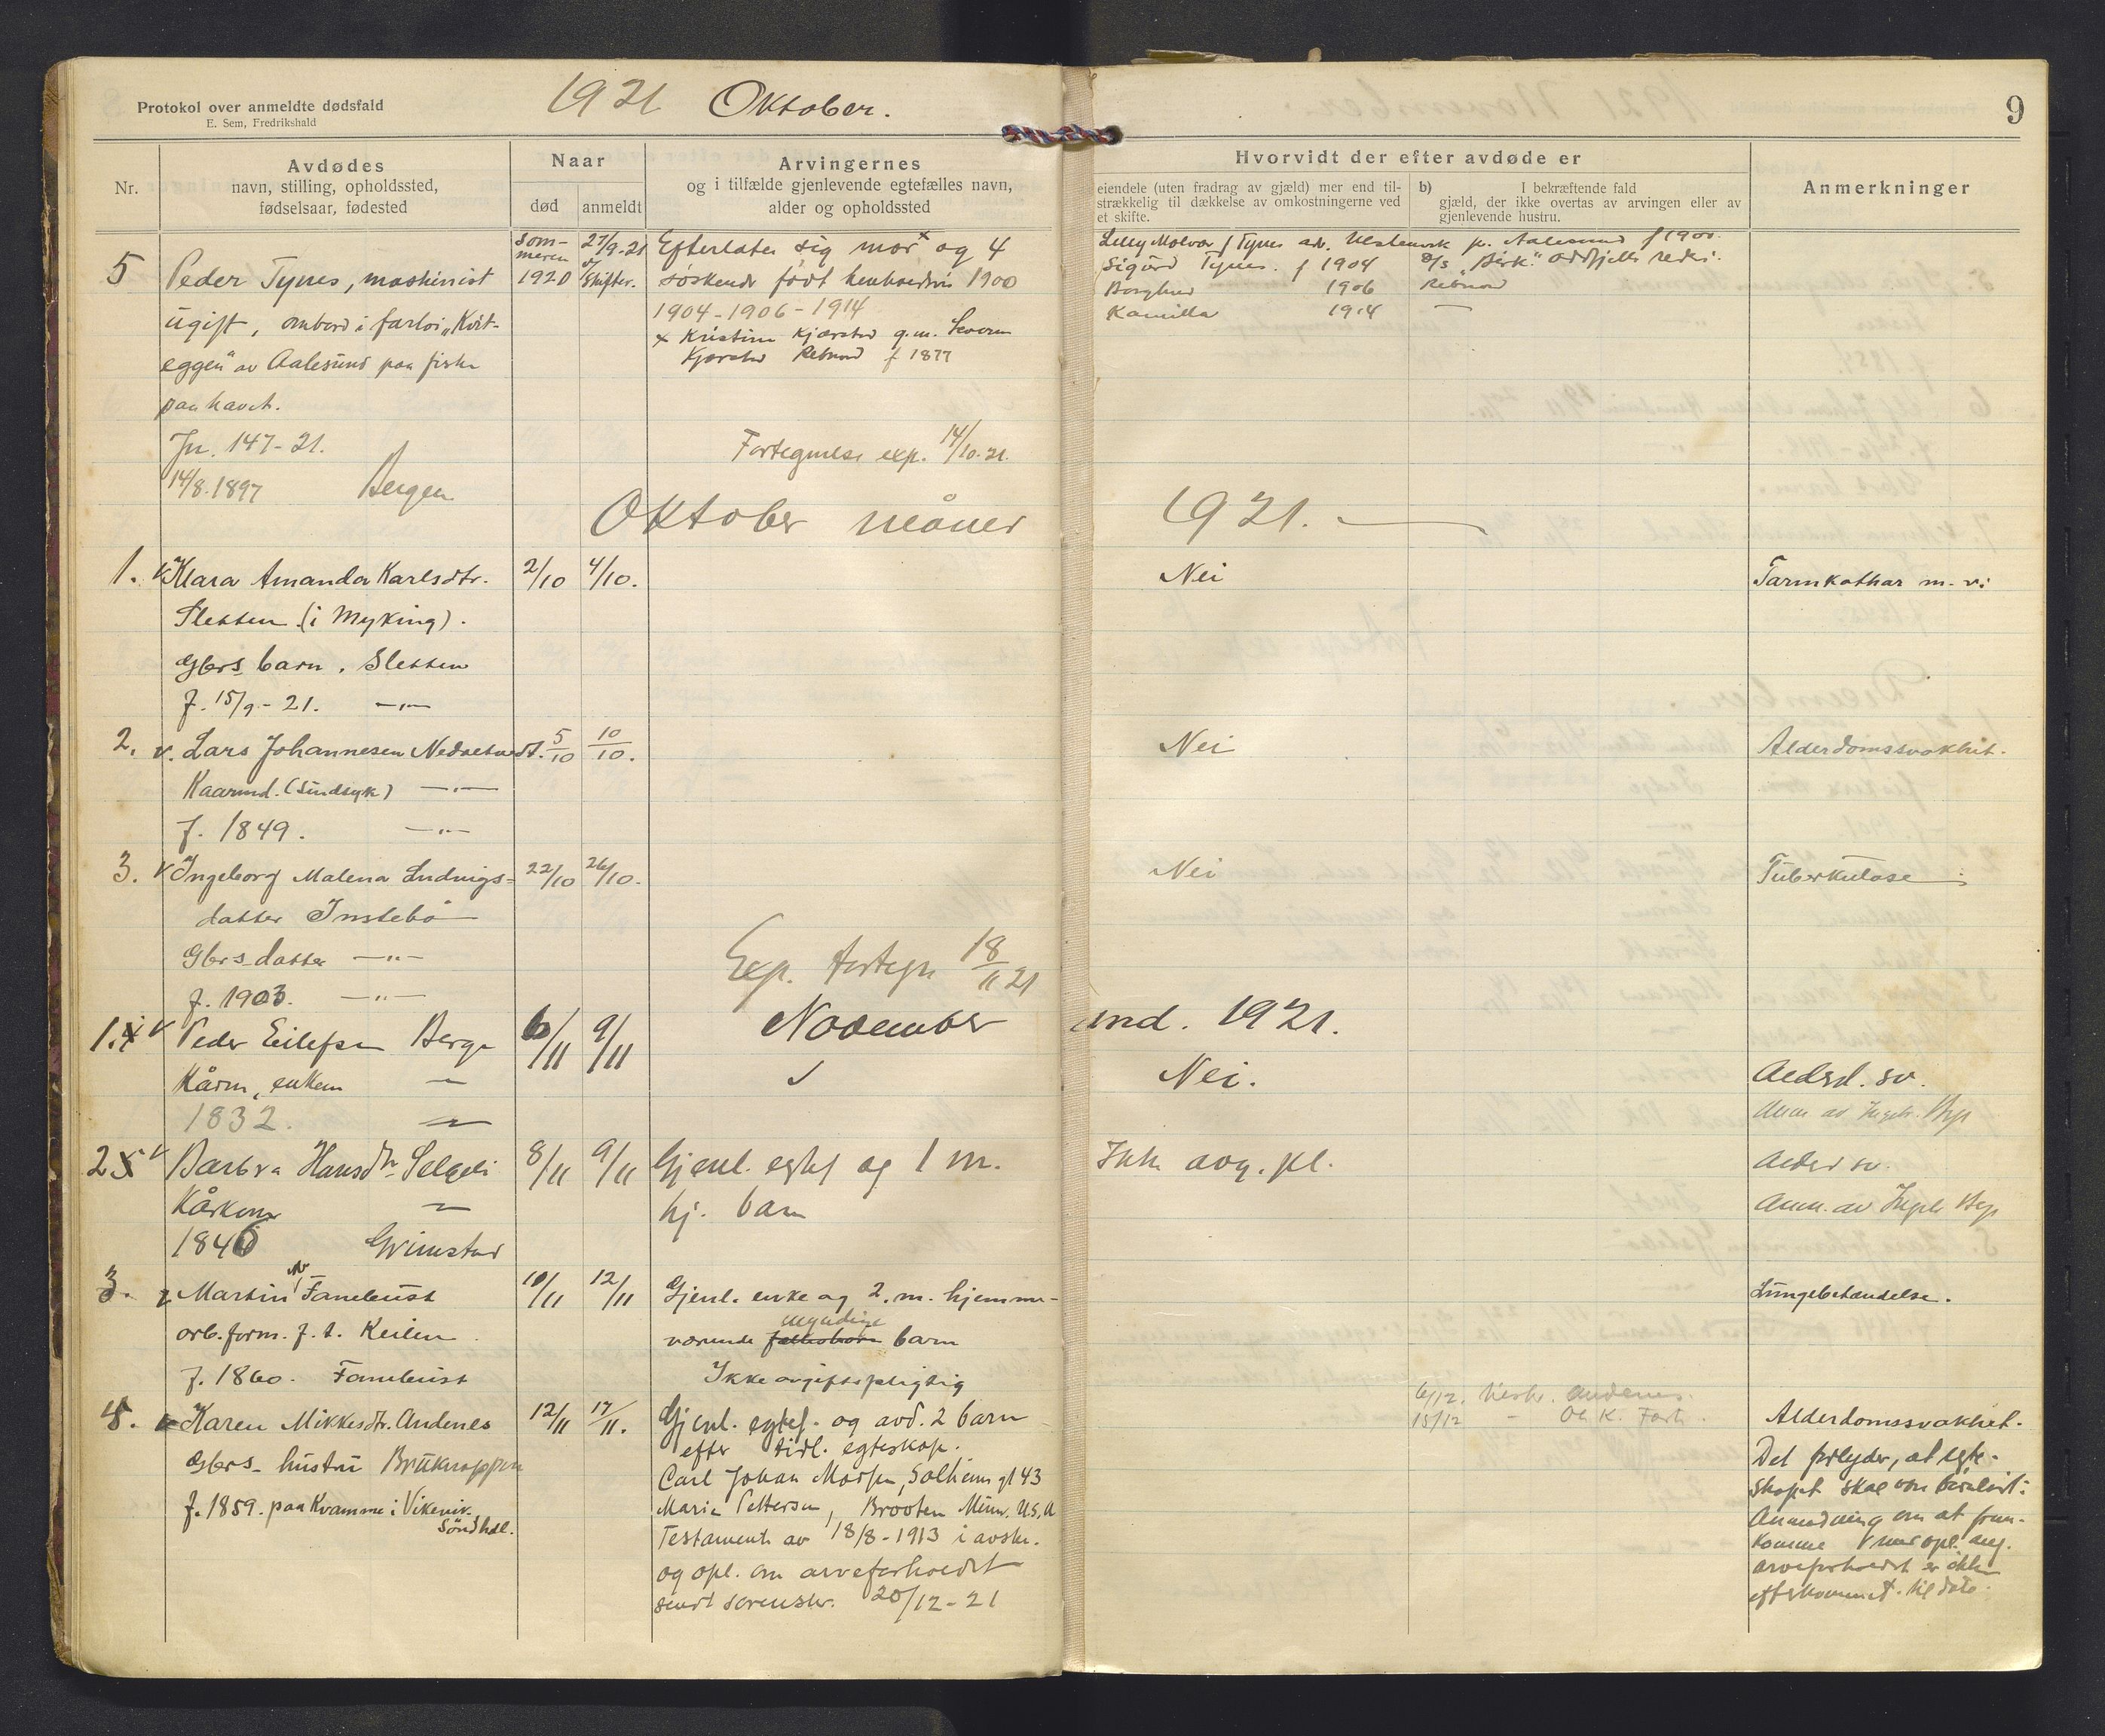 Protokol over anmeldte dødsfald
E. Sem, Fredrikshald
1921 Oktober.
9
Nr.
Avdødes
navn, stilling, opholdssted,
fødselsaar, fødested
Naar
død
anmeldt
Arvingernes
og i tilfælde gjenlevende egtefælles navn,
alder og opholdssted
Hvorvidt der efter avdøde er
eiendele (uten fradrag av gjæld) mer end til-
strækkelig til dækkelse av omkostningerne ved
et skifte.
b) I bekræftende fald
gjæld, der ikke overtas av arvingen eller av
gjenlevende hustru.
Anmerkninger
5 Peder Tynes, maskinist
ugift, ombord i fartøi "Kvit-
eggen" av Aalesund paa fiske
paa havet.
Jn. 147-21.
14/8.1897 Bergen
som-
meren
1920
27/9-21
Skifter.
Efterlater sig mor x og 4
søskende født henholdsvis 1900
1904-1906-1914
x Kristine Kjærstad g.m.
Kjærstad f 1877
Fortegnelse exp. 14/10-21.
Tynes Aalesund f 1900.
Sigurd Tynes. f 1904 D/S "Birk"
Borghild 1906
Kamilla 1914 —
Oktober måned 1921. —
1. v Klara Amanda Karlsdtr. 2/10 4/10. Nei Tarmkathar m. v.
Sletten (i Myking).
Gbrs barn. Sletten
f. 15/9-21. —"—
2. v. Lars Johannesen Nedretvedt. 5/10 10/10. Nei Alderdomssvakhet.
Kaarmd. (Sindsyk) —"—
f. 1849. —"—
3. v Ingeborg Malena Ludvigs- 22/10 26/10. Nei Tuberkulose
datter Instebø
Gbrs datter —"—
f. 1903. —"—
Exp. fortegn 18/11 21
November md. 1921.
1. v Peder Eilefsen Berge 6/11 9/11 Nei. Aldrd. sv.
Kårm, enkem —
1832. —
2 v Barbra Hansdtr Selgeli 8/11 9/11 Gjenl. egtef og 1 m. Ikke avg. pl. Alder sv.
Kårkone — hj. barn
1846 Grimstad
3. v Martin N Fanebust 10/11 12/11 Gjenl. enke og 2. m. hjemme- Lungebetændelse.
arb.form. f. t. Keilen værende myndige barn
f. 1860. Fanebust Ikke avgiftspligtig
4. v Karen Mikkesdtr. Andenes 12/11 17/11. Gjenl. egtef. og avd. 2 barn 6/12. Andenes. Alderdomssvakhet.
15/12 —
efter tidl. egteskap.
Gbrs- hustru Bruknappen
Carl Johan Solheimsgt 43
f. 1859. paa Kvamme i Vikevik.
Søndhdl.
Marie Pettersen, Brooten Minn. U.S.A
Testamente av 18/8-1913 i avskr.
og opl. om arveforholdet
sendt sorenskr. 20/12-21
Det forlyder, at egte-
skapet skal være
Anmodning om at frem-
komme med opl. ang.
arveforholdet er ikke
efterkommet til dato.